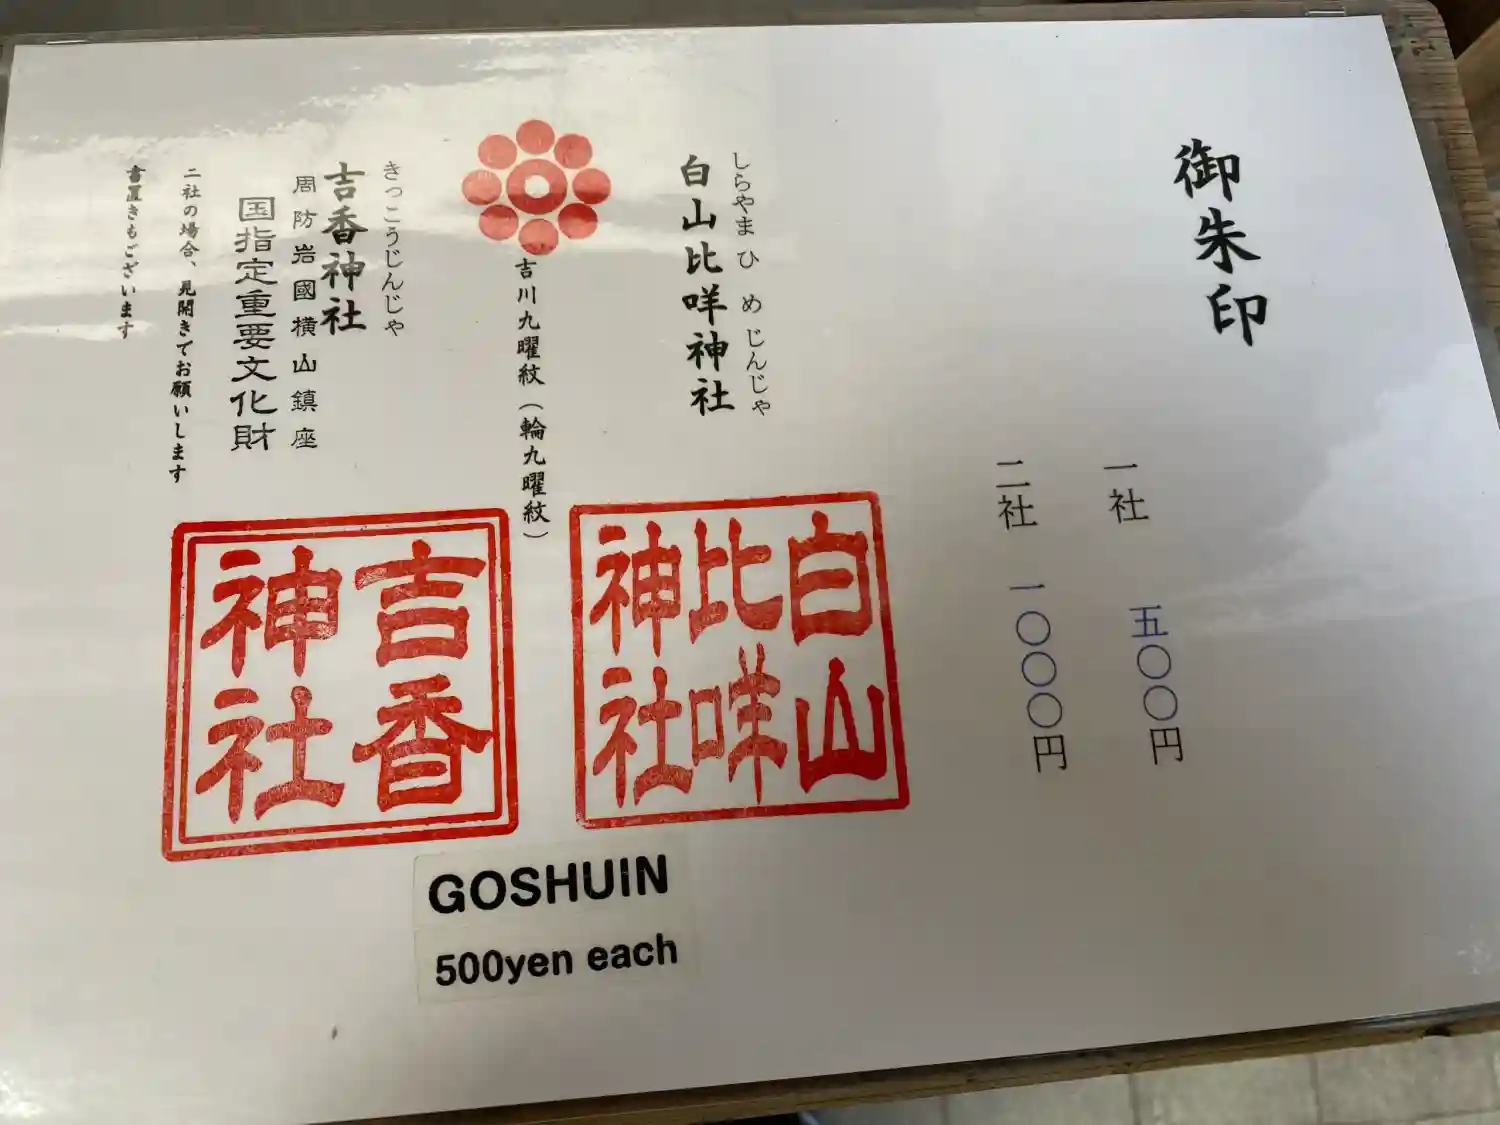 御朱印
一社 五〇〇円
二社 一〇〇〇円
しらやまひめじんじゃ
白山比咩神社
吉川九曜紋（輪九曜紋）
きっこうじんじゃ
吉香神社
周防岩國横山鎮座
国指定重要文化財
二社の場合、見開きでお願いします
書置きもございます
白山
比咩
神社
吉香
神社
GOSHUIN
500yen each